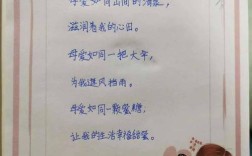 母爱如同山间的清泉，
滋润着我的心田。
母爱如同一把大伞，
为我遮风挡雨。
母爱如同一颗蜜糖，
让我的生活幸福甜蜜。